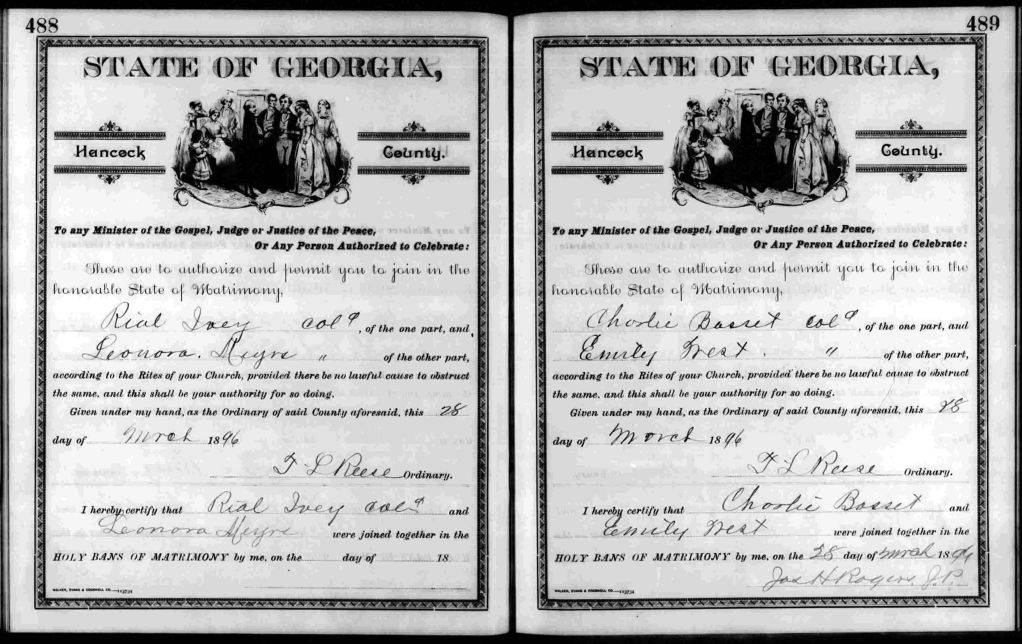 488
STATE OF GEORGIA,
Hancock County.
To any Minister of the Gospel, Judge or Justice of the Peace,
Or Any Person Authorized to Celebrate:
These are to authorize and permit you to join in the
honorable State of Matrimony,
Rial Ivey cold, of the one part, and
Leonora. " of the other part,
according to the Rites of your Church, provided there be no lawful cause to obstruct
the same, and this shall be your authority for so doing.
Given under my hand, as the Ordinary of said County aforesaid, this 28
day of March 1896
T L Reese Ordinary.
I hereby certify that Rial Ivey cold and
Leonora were joined together in the
HOLY BANS OF MATRIMONY by me, on the day of 18
WALKER, EVANS & COGSWELL CO.
489
STATE OF GEORGIA,
Hancock County.
To any Minister of the Gospel, Judge or Justice of the Peace,
Or Any Person Authorized to Celebrate:
These are to authorize and permit you to join in the
honorable State of Matrimony,
Charlie Basset cold, of the one part, and
Emily West. " of the other part,
according to the Rites of your Church, provided there be no lawful cause to obstruct
the same, and this shall be your authority for so doing.
Given under my hand, as the Ordinary of said County aforesaid, this 28
day of March 1896
T L Reese Ordinary.
I hereby certify that Charlie Basset and
Emily West were joined together in the
HOLY BANS OF MATRIMONY by me, on the 28 day of March 1896
Jas H Rogers J.P.
WALKER, EVANS & COGSWELL CO.